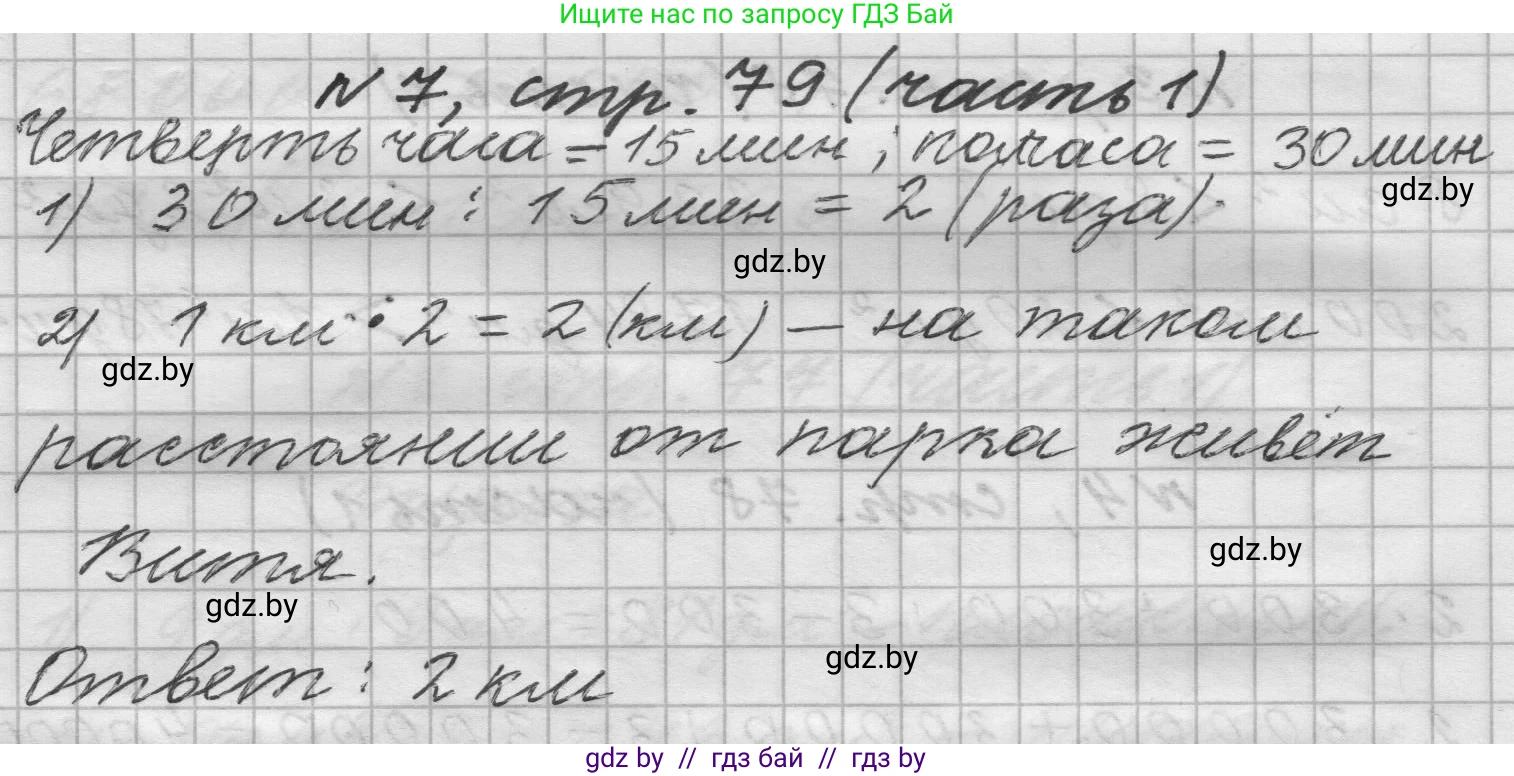 Ищите нас по запросу ГДЗ Бай
№7, стр. 79 (часть 1)
Четверть часа = 15 мин; полчаса = 30 мин
gdz.by
1) 30 мин : 15 мин = 2 (раза).
gdz.by
2) 1 км • 2 = 2 (км) — на таком
gdz.by
расстоянии от парка живёт
Витя.
gdz.by
gdz.by
Ответ: 2 км
gdz.by
gdz by // гдз бай // гдз by